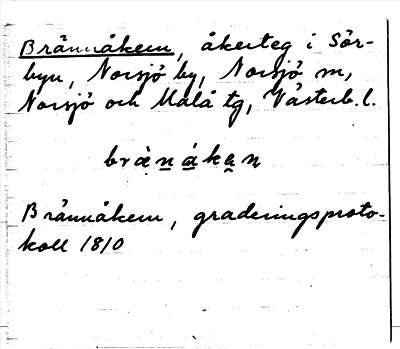 Brännåkern, åkerteg i Sör-
byn, Norsjö by, Norsjö sn,
Norsjö och Malå tg, Västerb. l.
brànákan
Brännåkern, graderingsproto-
koll 1810